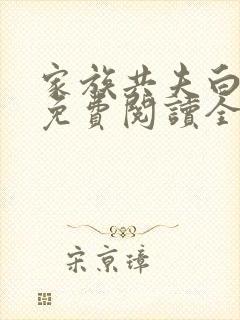 家族共夫白
免費閱讀全
宋京璋